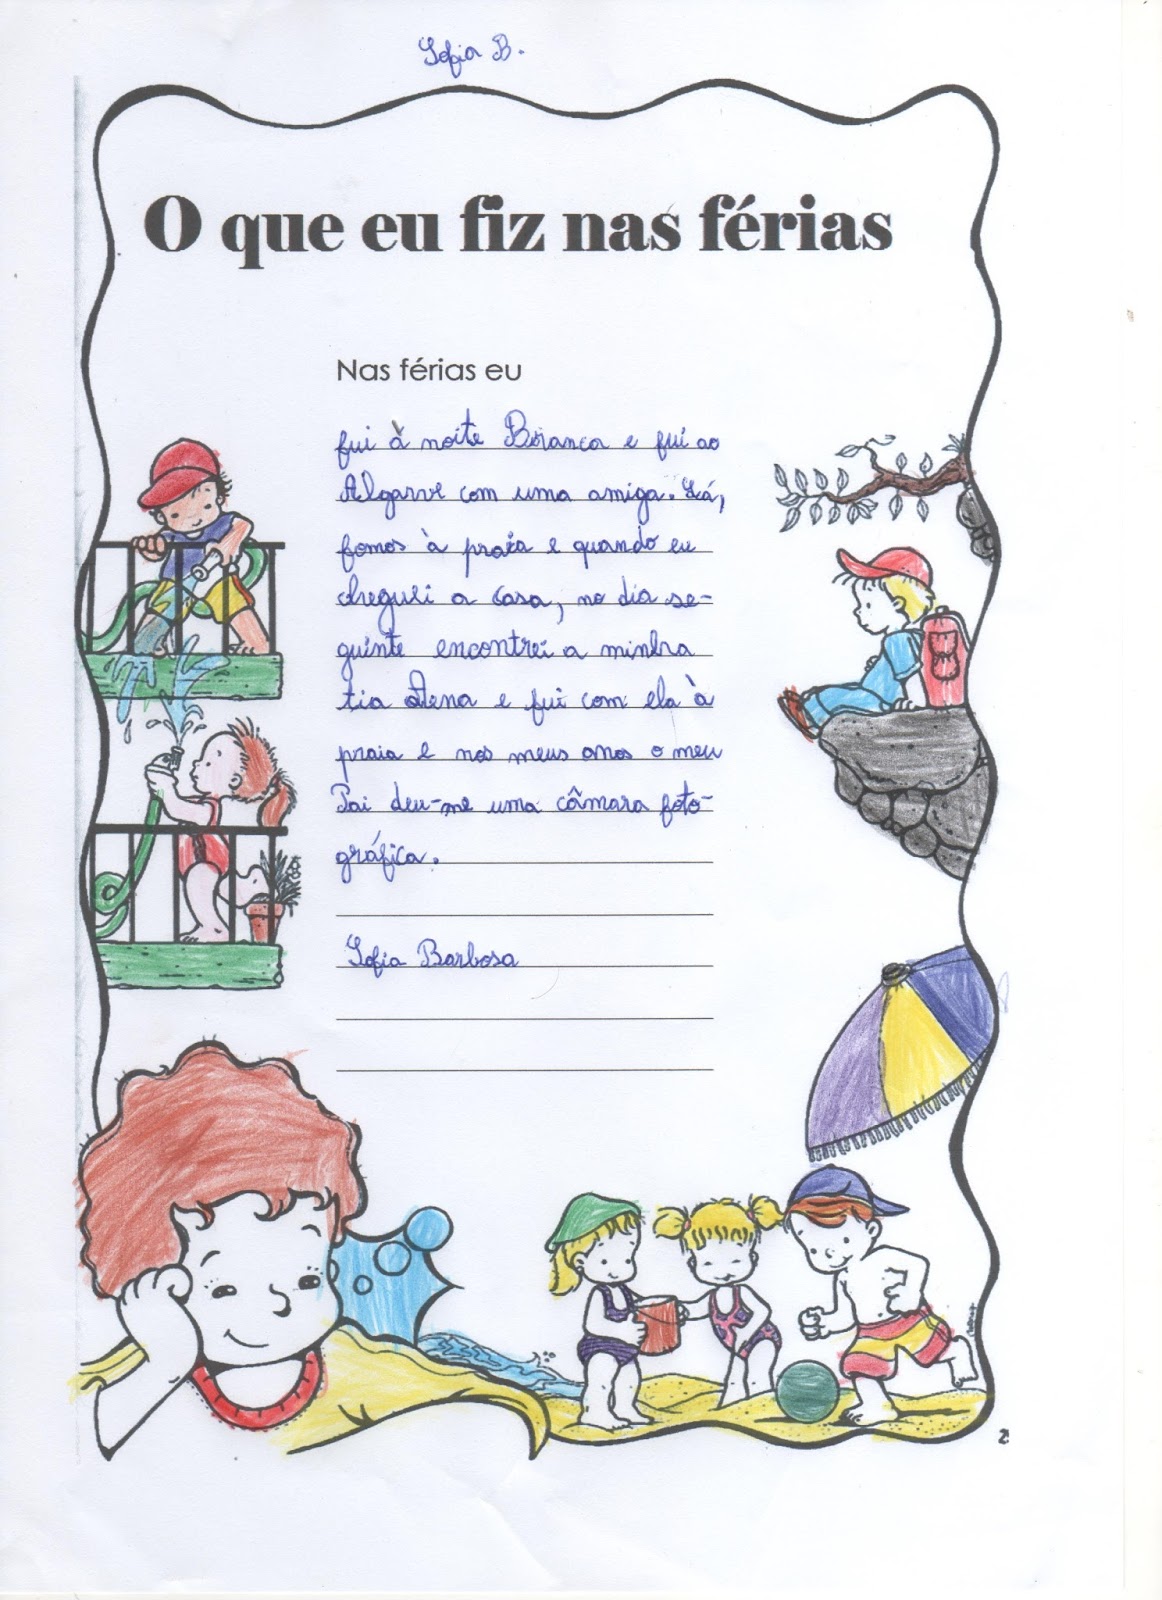 Sofia B.
O que eu fiz nas férias
Nas férias eu
fui à noite Branca e fui ao
Algarve com uma amiga. Lá,
fomos à praia e quando eu
cheguei a casa, no dia se-
guinte encontrei a minha
tia Lena e fui com ela à
praia e nos meus anos o meu
Pai deu-me uma câmara foto-
gráfica.
Sofia Barbosa